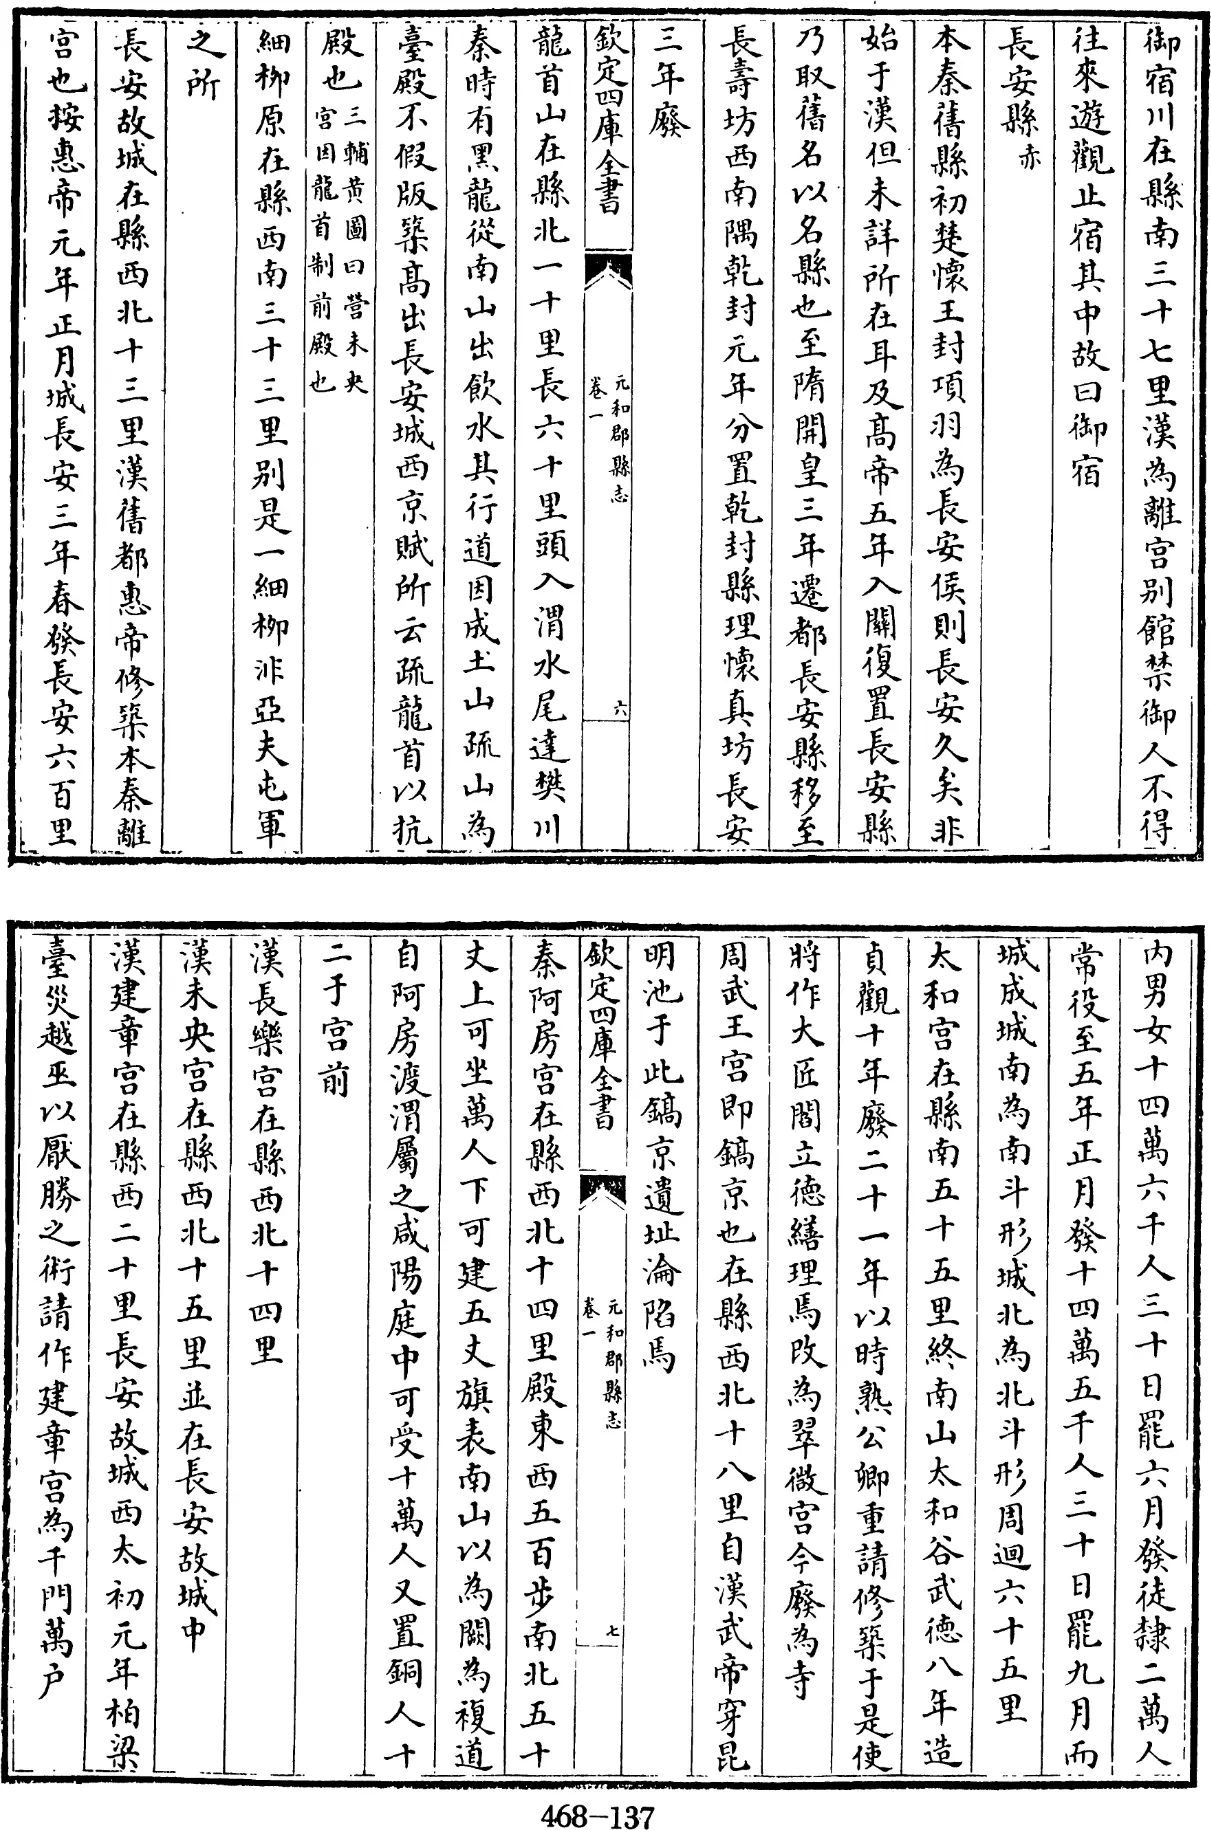 御宿川在縣南三十七里漢為離宫别館禁御人不得
往來遊觀止宿其中故曰御宿
長安縣赤
本秦舊縣初楚懷王封項羽為長安侯則長安久矣非
始于漢但未詳所在耳及髙帝五年入關復置長安縣
乃取舊名以名縣也至隋開皇三年遷都長安縣移至
長壽坊西南隅乾封元年分置乾封縣理懷真坊長安
三年廢
欽定四庫全書
元和郡縣志
卷一
六
龍首山在縣北一十里長六十里頭入渭水尾達樊川
秦時有黑龍從南山出飲水其行道因成土山疏山為
臺殿不假版築髙出長安城西京賦所云疏龍首以抗
殿也三輔黄圖曰營未央
宫因龍首制前殿也
細柳原在縣西南三十三里别是一細柳非亞夫屯軍
之所
長安故城在縣西北十三里漢舊都惠帝修築本秦離
宫也按惠帝元年正月城長安三年春發長安六百里
内男女十四萬六千人三十日罷六月發徒隸二萬人
常役至五年正月發十四萬五千人三十日罷九月而
城成城南為南斗形城北為北斗形周迴六十五里
太和宫在縣南五十五里終南山太和谷武德八年造
貞觀十年廢二十一年以時熱公卿重請修築于是使
將作大匠閻立德繕理焉改為翠微宫今廢為寺
周武王宫即鎬京也在縣西北十八里自漢武帝穿昆
明池于此鎬京遺址淪陷焉
欽定四庫全書
元和郡縣志
卷一
七
秦阿房宫在縣西北十四里殿東西五百步南北五十
丈上可坐萬人下可建五丈旗表南山以為闕為複道
自阿房渡渭屬之咸陽庭中可受十萬人又置銅人十
二于宫前
漢長樂宫在縣西北十四里
漢未央宫在縣西北十五里並在長安故城中
漢建章宫在縣西二十里長安故城西太初元年柏梁
臺災越巫以厭勝之術請作建章宫為千門萬户
468-137